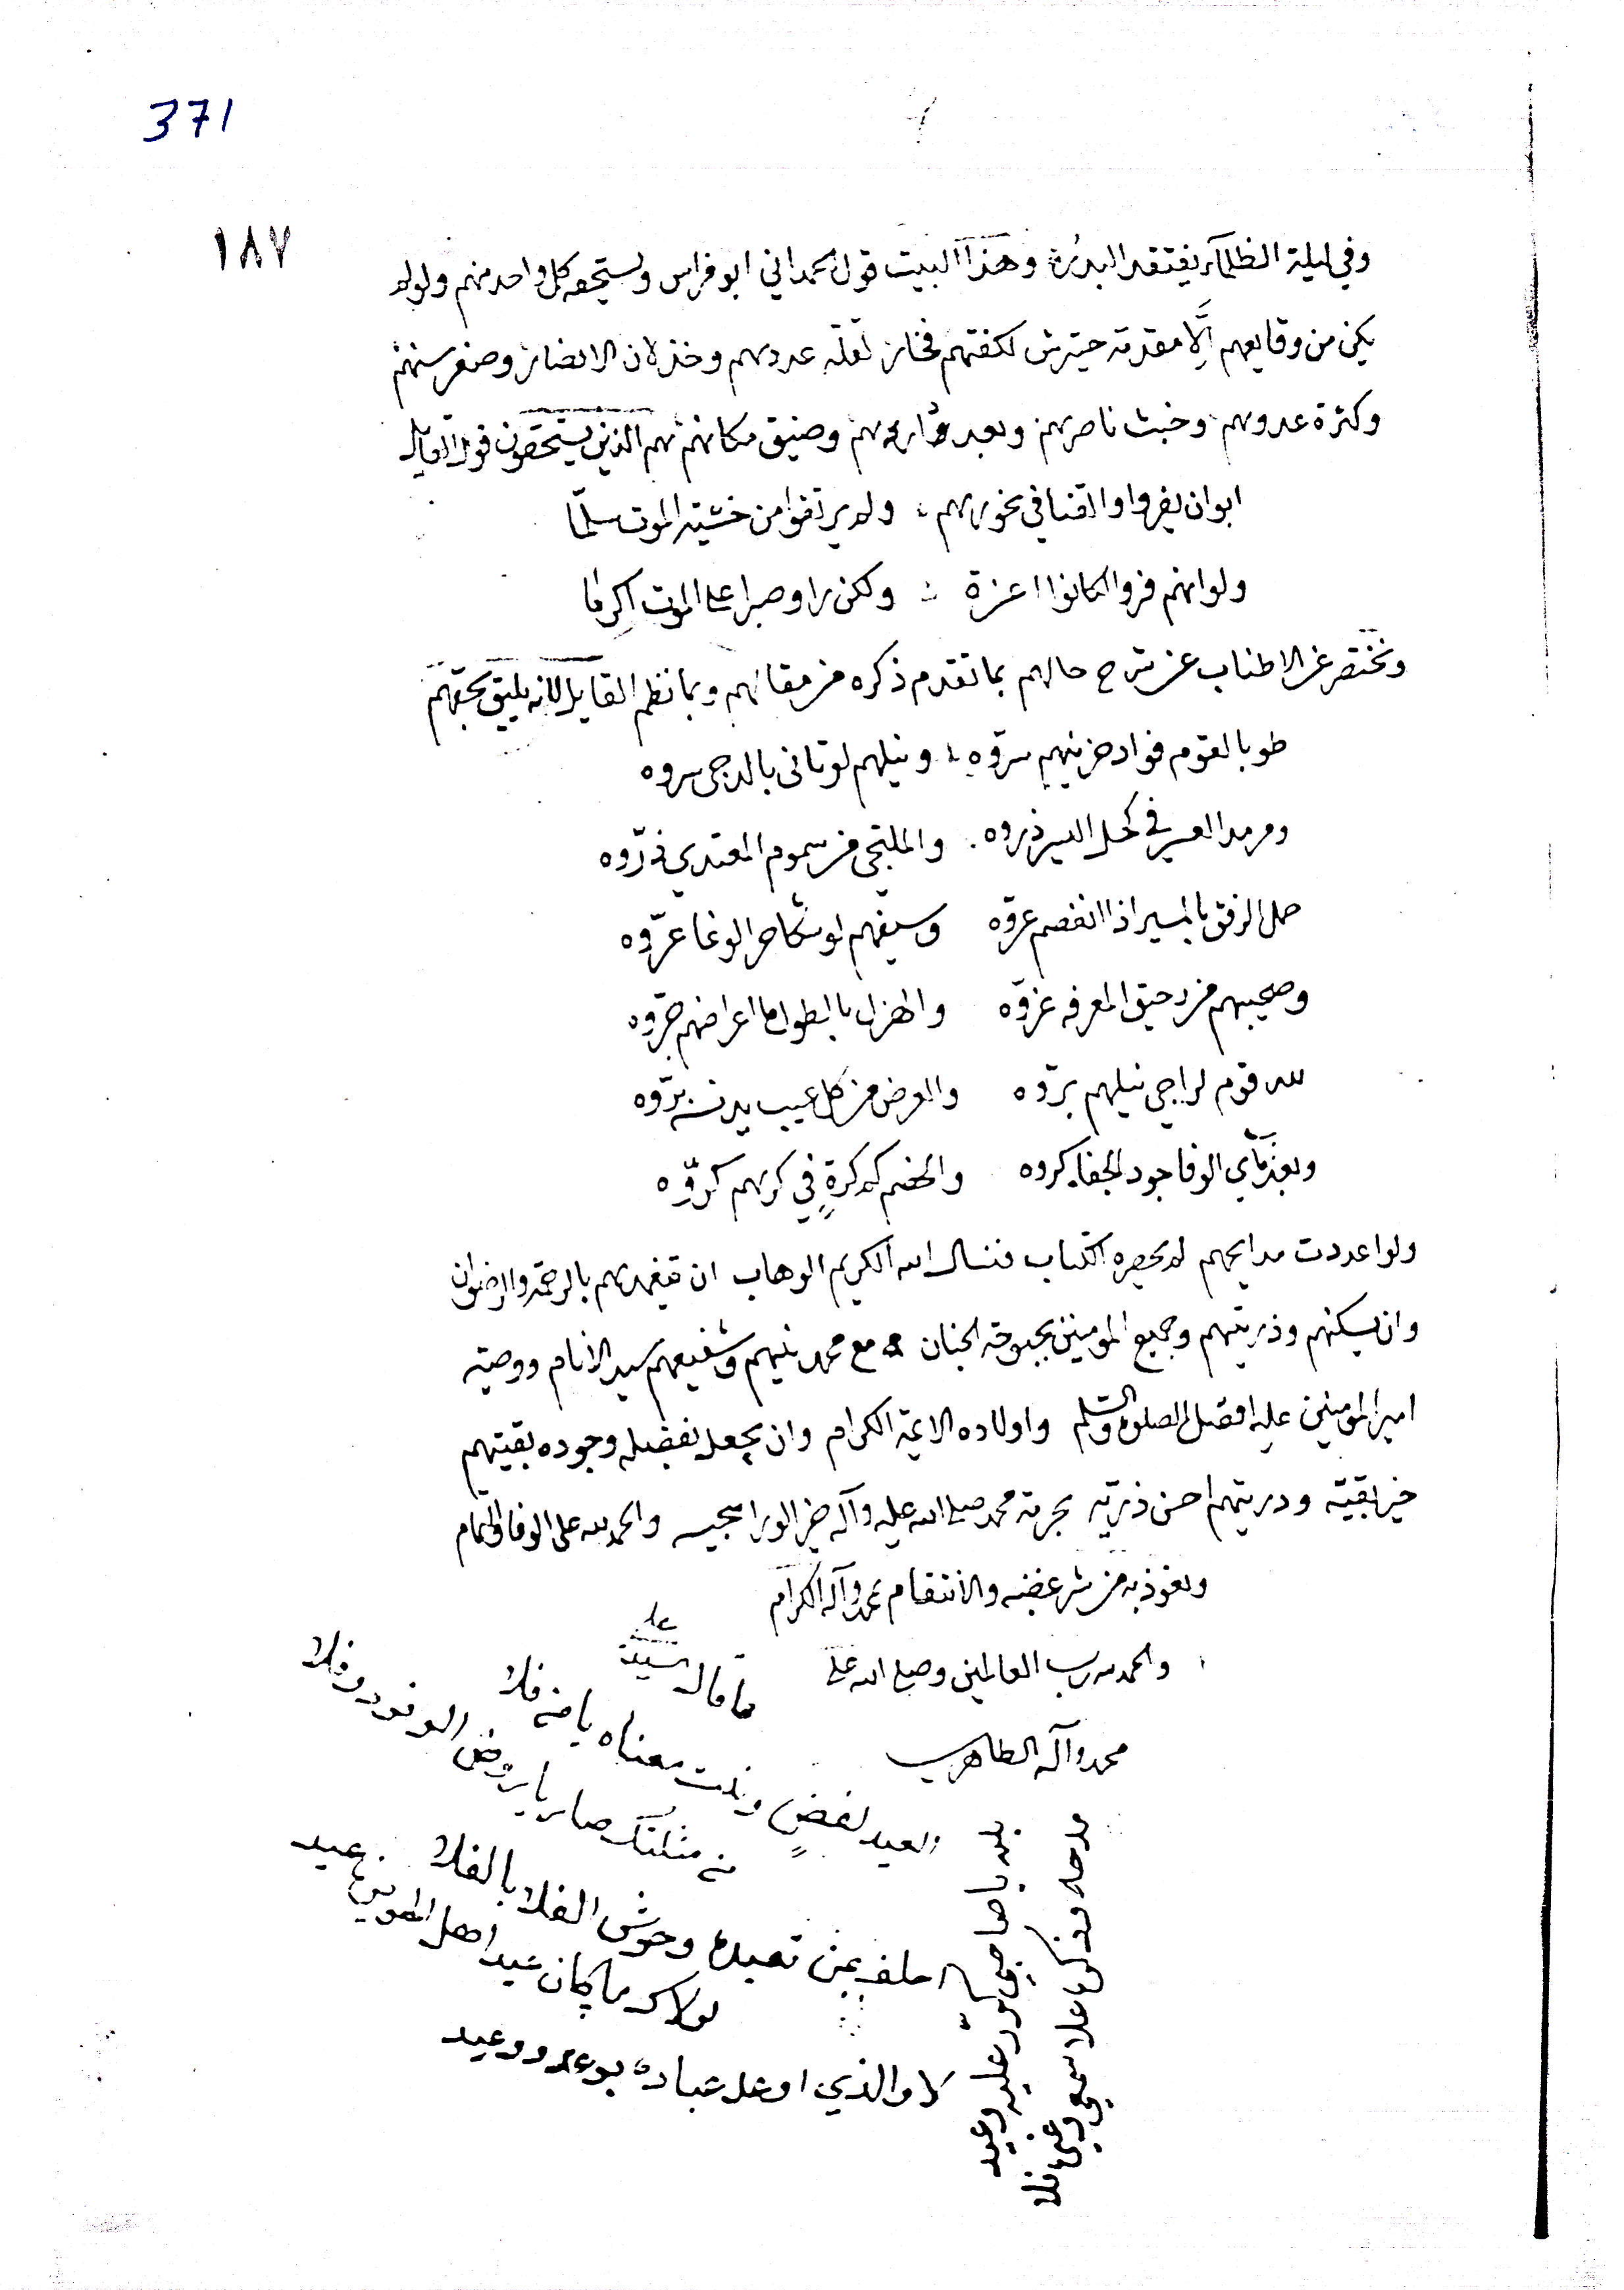 371
١٨٧
وفي ليلة الظلمآء يفتقد البدرُ وهذا البيت قول الحمداني ابو فراس ويستحقه كل واحد منهم ولو لم
يكن من وقايعهم إلّا مقدمة حيترش لكفتهم فخار لقلة عددهم وخذلان الانصار وصغر سنهم
وكثرة عدوهم وخبث ناصرهم وبعد وضيق مكانهم هم الذين يستحقون قول القايل
ابوا ان يفروا والقنا في نحورهم ولم يرتقوا من خشية الموت سلّما
ولو انهم فروا لكانوا اعزة ولكن راو صبرا على الموت اكرما
ونختصر عن الاطناب عن شرح حالهم بما تقدم ذكره من مقالهم وبما نظم القايل لانه يليق بحقهم
طوبا لقوم فواد حزينهم سرّوه ونيلهم لو تانى بالدجى سروه
ومرمد العسر في كحل اليسر ذروه والملتجي من سموم المعتدي ذرّوه
حمل الرفق بالمسير اذا انفصم عروّه وسيفهم لو تكاحر الوغا عرّوه
وصحيبهم من رحيق المعرفه غروّه والهزل بالطول ما اعراضهم جرّوه
لله قوم لراجي نيلهم برّوه والعرض من كل عيب يدنسه برّوه
الوفا جود الجفا كروه والخصم كم كرةٍ في كرهم كرّوه
ولو اعددت مدايحهم لم يحصره الكتاب فنسال الله الكريم الوهاب ان يتغمدهم بالرحمة والرضوان
وان يسكنهم وذريتهم وجميع المومنين بحبوحة الجنان مع محمد نبيهم وشفيعهم سيد الانام ووصيه
امير المومنين عليه افضل الصلوة والسّلم واولاده الايمة الكرام وان يجعل بفضله وجوده بقيتهم
خير بقية وذريتهم احسن ذرّية بحرمة محمد صلى الله عليه وآله خير الورا سجيه والحمد لله على الوفا والتمام
ونعوذ به من شر غضبه والانتقام بمحمد وآله الكرام
والحمد لله رب العالمين وصلى الله على
محمد وآله الطاهرين
ما قال سيد علي
العيد لفضٍ ونت معناه يا من فلا
من مثلتك صار يا روض الوفود وفلا
احلف بمن تعبده وحوش الفلا بالفلا
لولاك ما كان عيد اهل الهوى عيد
لا والذي اوعد عباده بوعد ووعيد
بلله يا صاحبي كرّر عليه وعيد
مدحه وذكره علا سمعي وغيره فلا